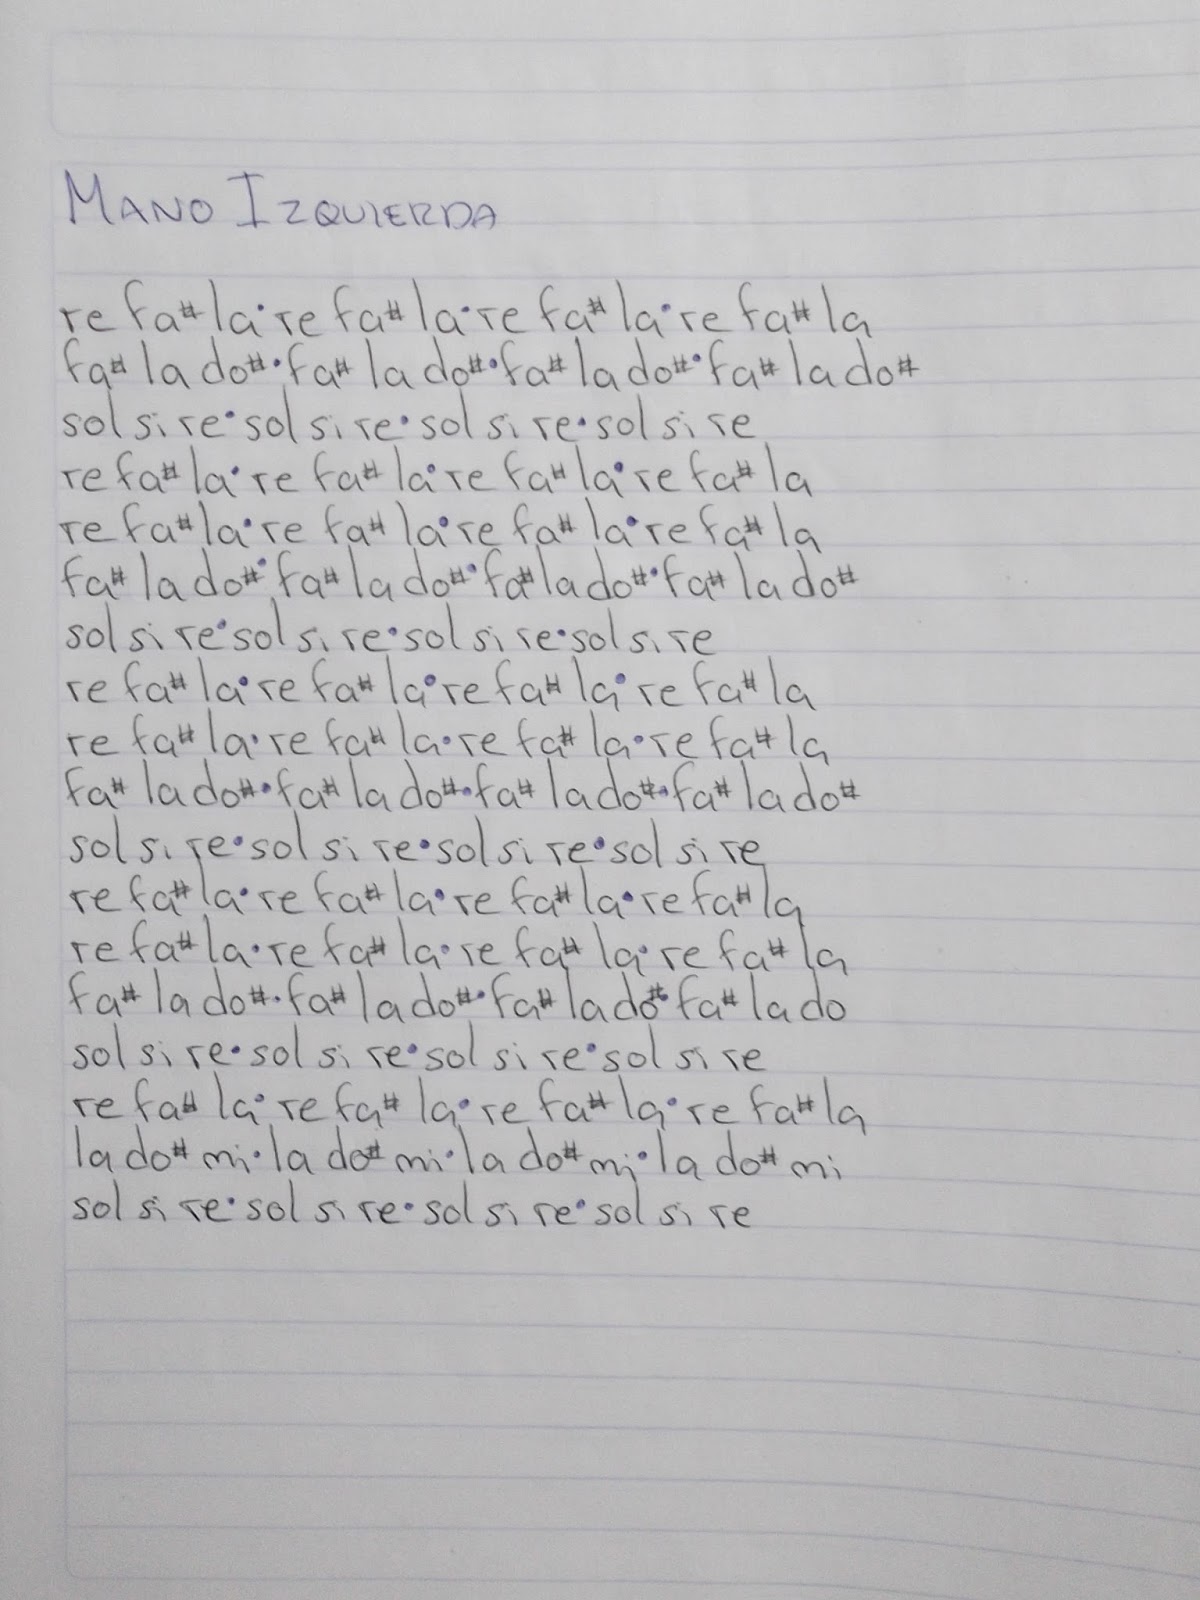 MANO IZQUIERDA
re fa# la·re fa# la·re fa# la·re fa# la
fa# la do#·fa# la do#·fa# la do#·fa# la do#
sol si re·sol si re·sol si re·sol si re
re fa# la·re fa# la·re fa# la·re fa# la
re fa# la·re fa# la·re fa# la·re fa# la
fa# la do#·fa# la do#·fa# la do#·fa# la do#
sol si re·sol si re·sol si re·sol si re
re fa# la·re fa# la·re fa# la·re fa# la
re fa# la·re fa# la·re fa# la·re fa# la
fa# la do#·fa# la do#·fa# la do#·fa# la do#
sol si re·sol si re·sol si re·sol si re
re fa# la·re fa# la·re fa# la·re fa# la
re fa# la·re fa# la·re fa# la·re fa# la
fa# la do#·fa# la do#·fa# la do#·fa# la do
sol si re·sol si re·sol si re·sol si re
re fa# la·re fa# la·re fa# la·re fa# la
la do# mi·la do# mi·la do# mi·la do# mi
sol si re·sol si re·sol si re·sol si re